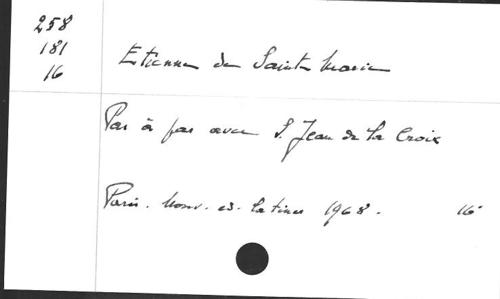 258
181
16
Etienne de Sainte Marie
Pas à pas avec S. Jean de la Croix
Paris. Nouv. ed. latines 1968. 16°